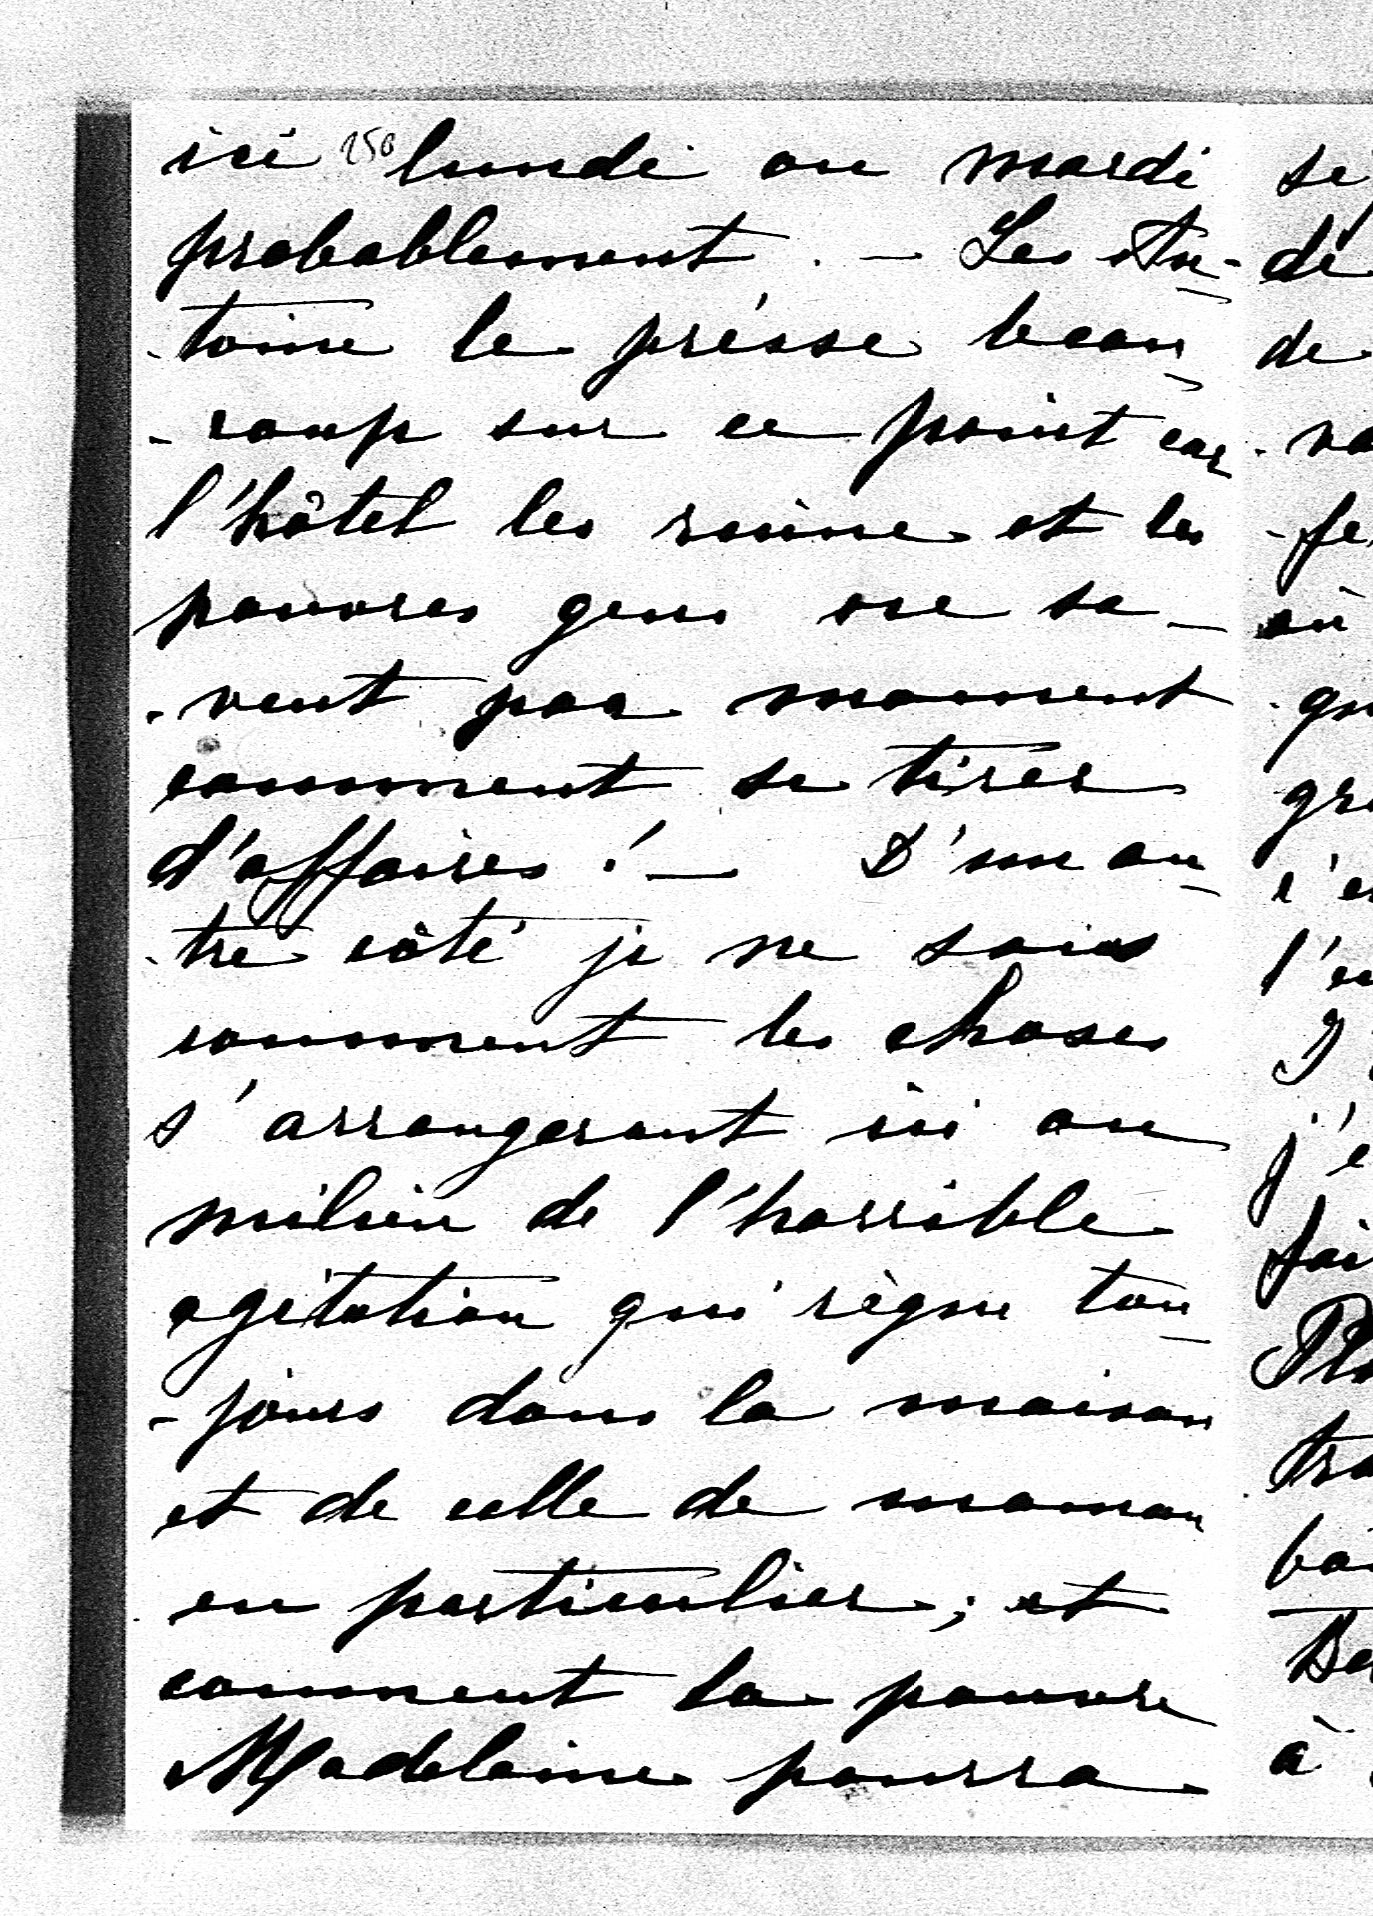 ici 250 lundi ou mardi
probablement. — Les An-
-toine le présse beau-
-coup sur ce point car
l'hôtel les ruine et les
pauvres gens ne sa-
-vent pas moment
comment se tirer
d'affaires ! — D'un au-
-tre côté je ne sais
comment les choses
s'arrangeront ici au
milieu de l'horrible
agitation qui règne tou-
-jours dans la maison
et de celle de maman
en particulier ; et
comment la pauvre
Madeleine pourra
sé
dé
de
où
à